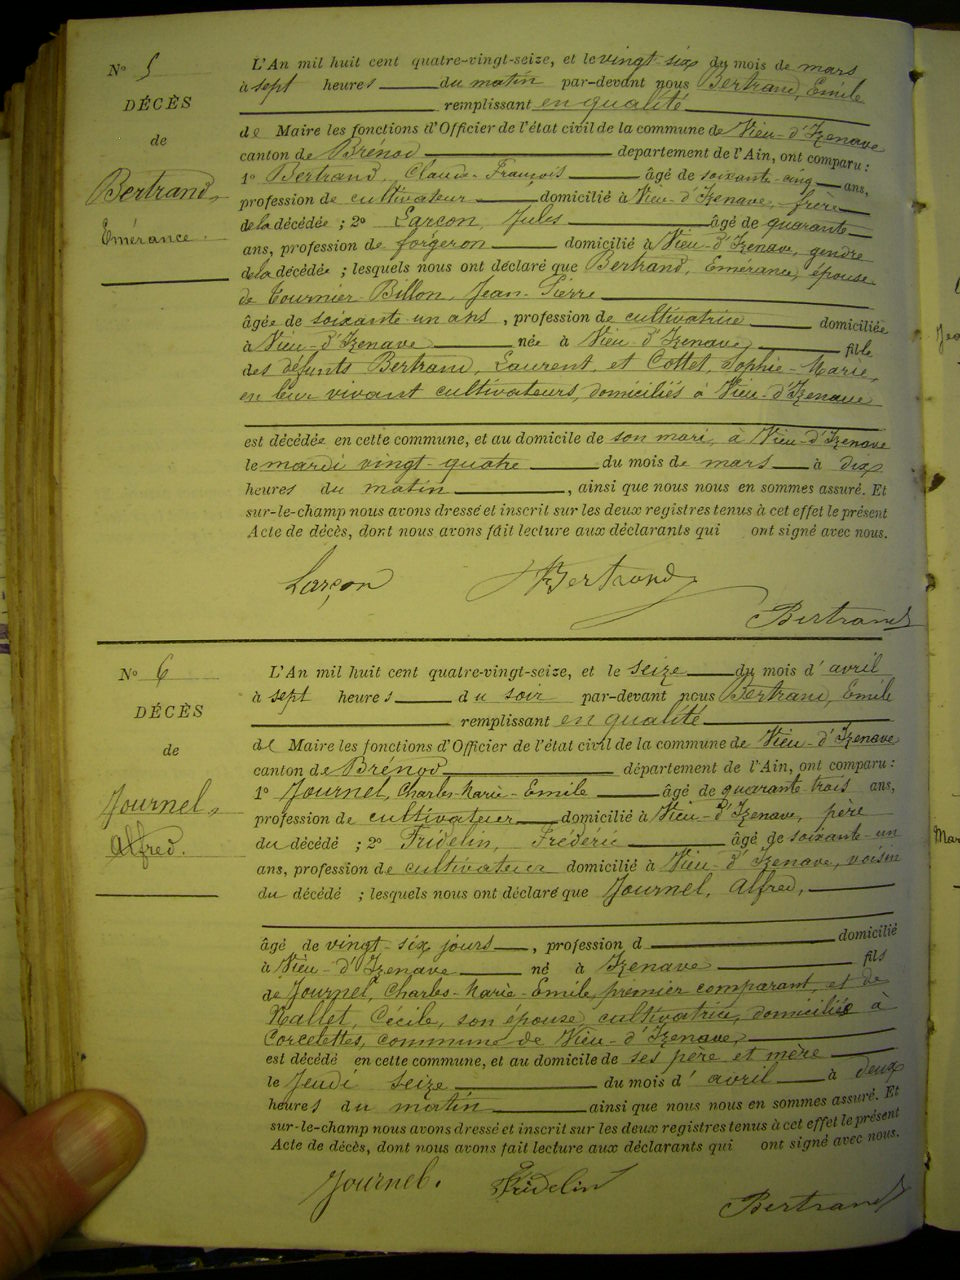 N° 5
DÉCÈS
de
Bertrand,
Emérance.
L'An mil huit cent quatre-vingt-seize, et le vingt-six du mois de mars
à sept heures du matin par-devant nous Bertrand, Emile
remplissant en qualité
de Maire les fonctions d'Officier de l'état civil de la commune de Vieu-d'Izenave
canton de Brénod departement de l'Ain, ont comparu :
1° Bertrand, Claude-François âgé de soixante-cinq ans,
profession de cultivateur domicilié à Vieu-d'Izenave, frère
de la décédée ; 2° Larçon, Jules âgé de quarante
ans, profession de forgeron domicilié à Vieu-d'Izenave, gendre
de la décédée ; lesquels nous ont déclaré que Bertrand, Emérance, épouse
de Tournier-Billon, Jean-Pierre
âgée de soixante un ans, profession de cultivatrice domiciliée
à Vieu-d'Izenave née à Vieu-d'Izenave fille
des défunts Bertrand, Laurent, et Cottet, Sophie-Marie,
en leur vivant cultivateurs, domiciliés à Vieu-d'Izenave
est décédée en cette commune, et au domicile de son mari, à Vieu-d'Izenave
le mardi vingt-quatre du mois de mars à dix
heures du matin, ainsi que nous nous en sommes assuré. Et
sur-le-champ nous avons dressé et inscrit sur les deux registres tenus à cet effet le présent
Acte de décès, dont nous avons fait lecture aux déclarants qui ont signé avec nous.
Larçon Bertrand
Bertrand
N° 6
DÉCÈS
de
Journel,
Alfred.
L'An mil huit cent quatre-vingt-seize, et le seize du mois d'avril
à sept heures du soir par-devant nous Bertrand, Emile
remplissant en qualité
de Maire les fonctions d'Officier de l'état civil de la commune de Vieu-d'Izenave
canton de Brénod département de l'Ain, ont comparu :
1° Journel, Charles-Marie-Emile âgé de quarante-trois ans,
profession de cultivateur domicilié à Vieu-d'Izenave, père
du décédé ; 2° Fridelin, Frédéric âgé de soixante-un
ans, profession de cultivateur domicilié à Vieu-d'Izenave, voisin
du décédé ; lesquels nous ont déclaré que Journel, Alfred,
âgé de vingt-six jours, profession d domicilié
à Vieu-d'Izenave né à Izenave fils
de Journel, Charles-Marie-Emile, premier comparant, et de
Mallet, Cécile, son épouse, cultivatrice, domiciliés à
Corcelettes, commune de Vieu-d'Izenave,
est décédé en cette commune, et au domicile de ses père et mère
le Jeudi seize du mois d'avril à deux
heures du matin ainsi que nous nous en sommes assuré. Et
sur-le-champ nous avons dressé et inscrit sur les deux registres tenus à cet effet le présent
Acte de décès, dont nous avons fait lecture aux déclarants qui ont signé avec nous.
Journel. Fridelin
Bertrand